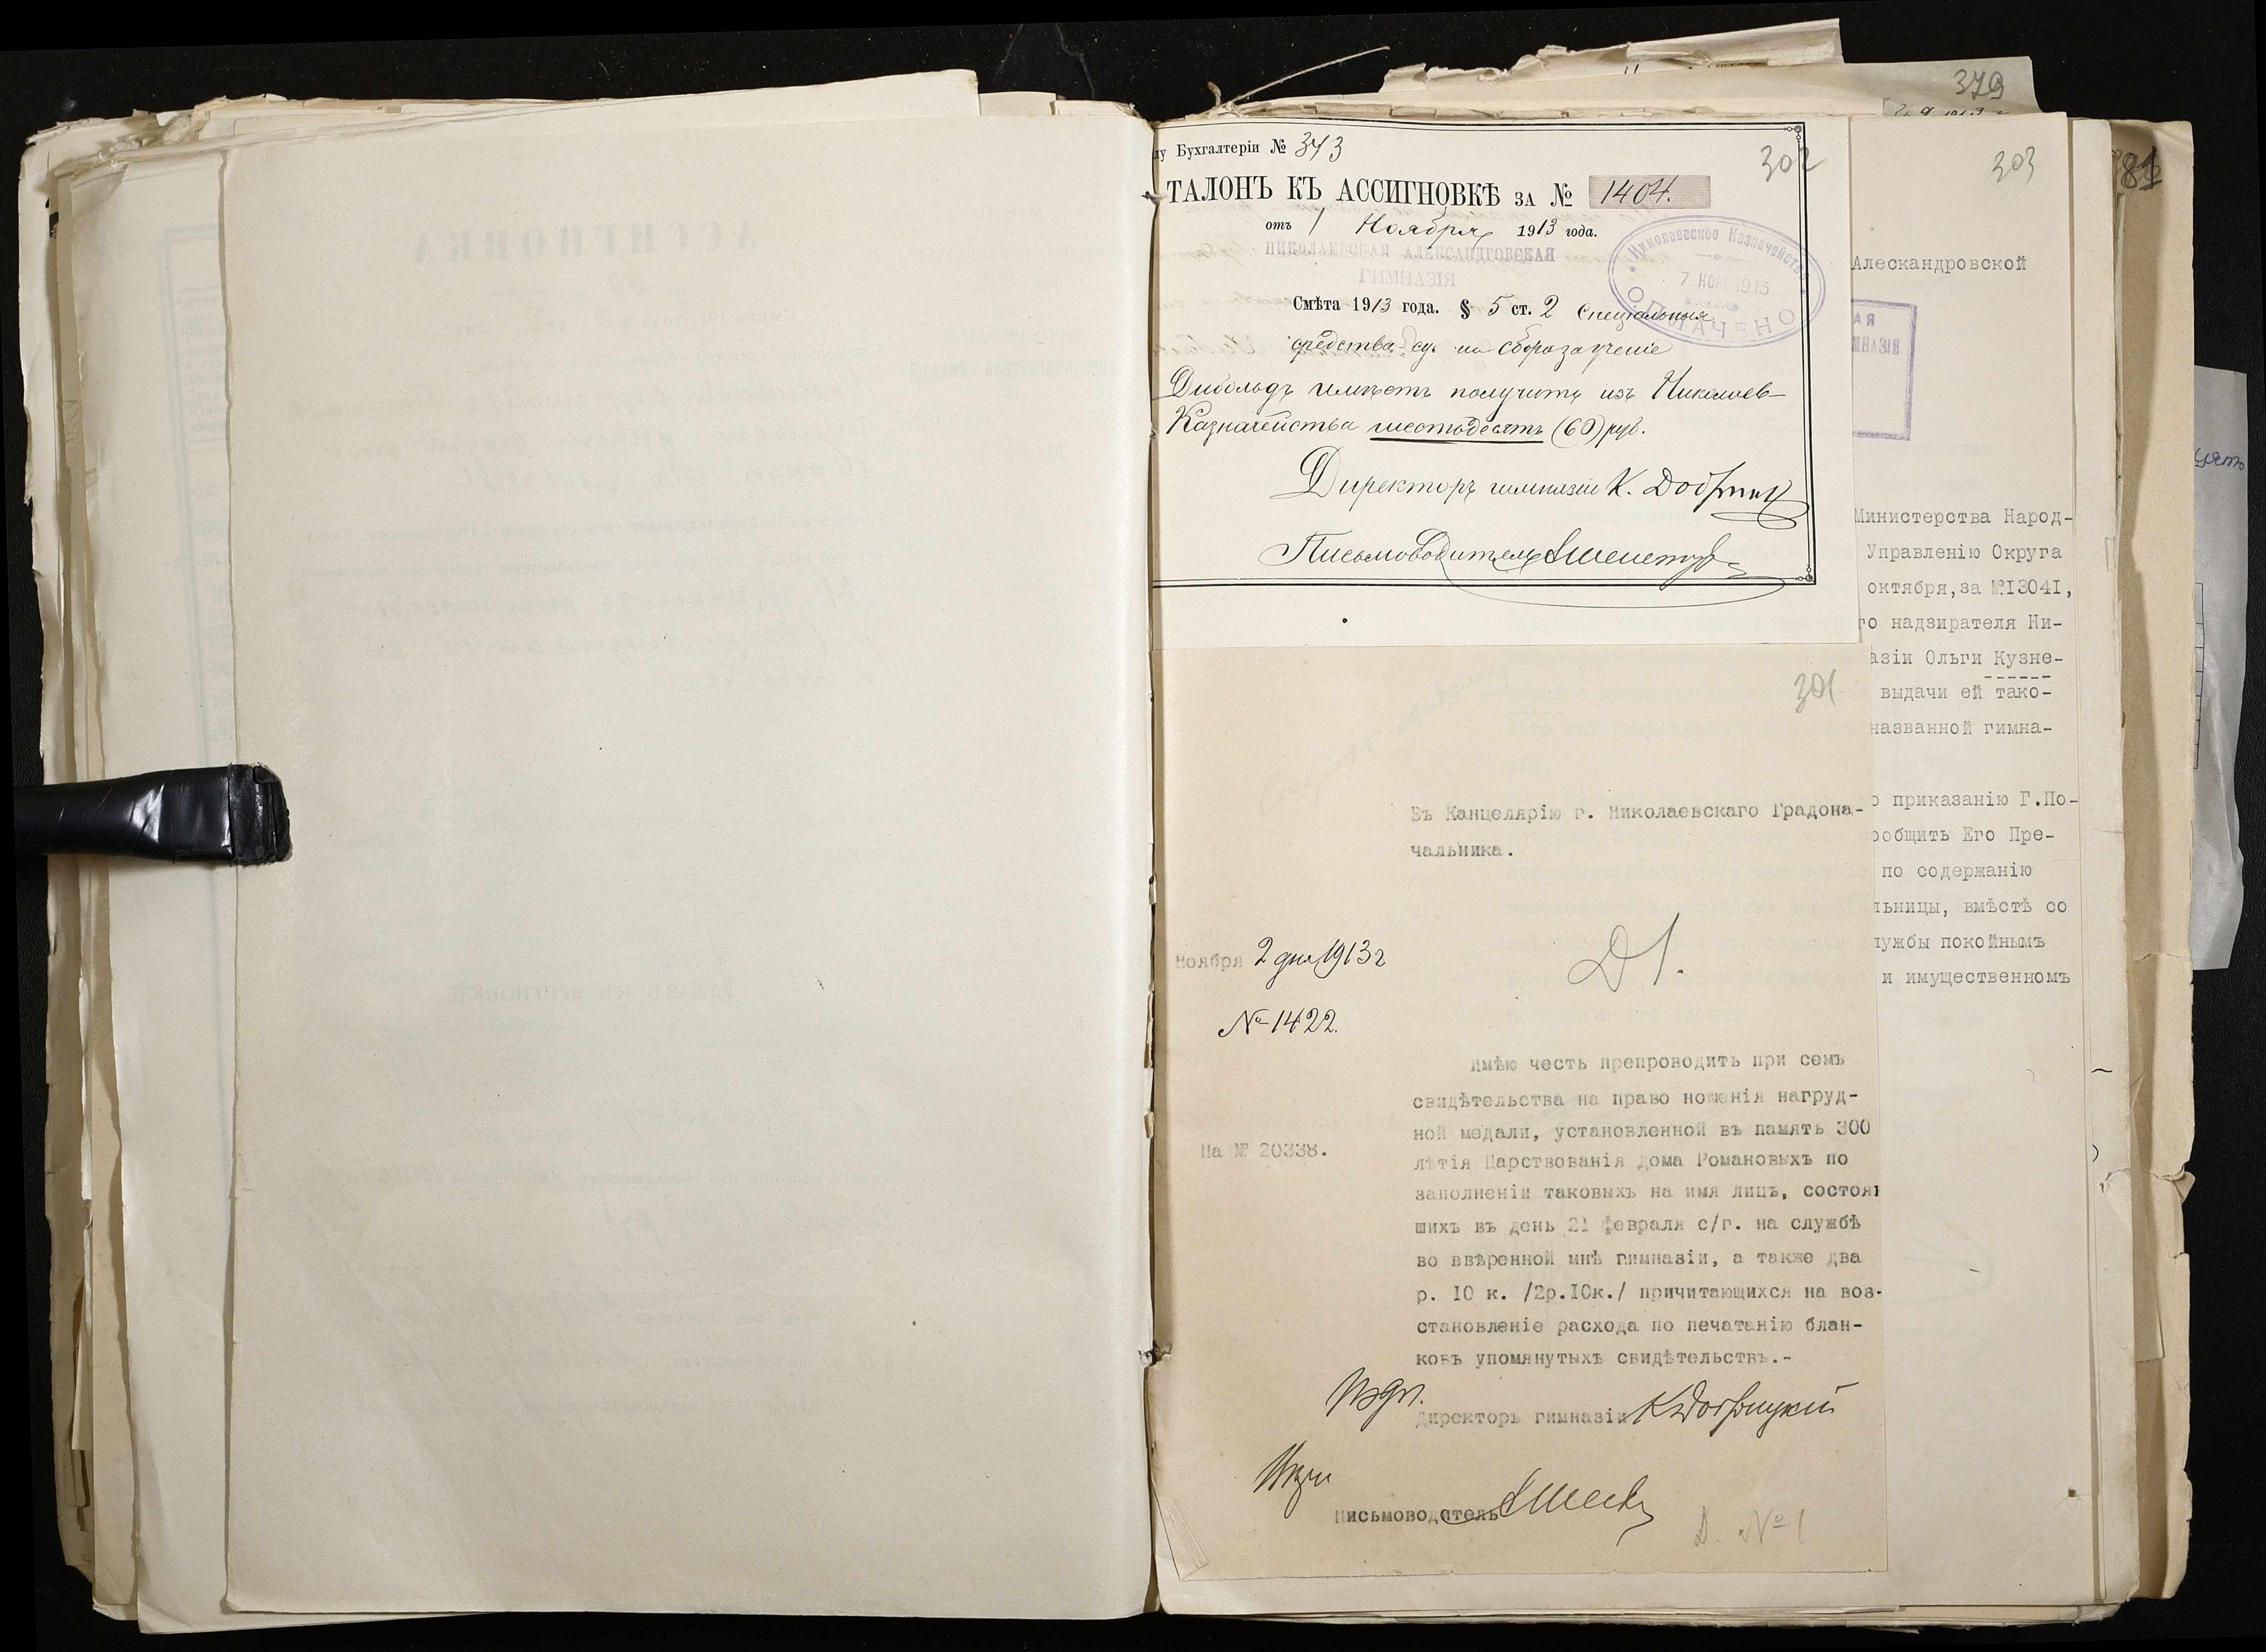 379
303
302
81
Бухгалтеріи № 343
ТАЛОНЪ КЪ АССИГНОВКѢ ЗА № 1404.
отъ 1 Ноября 1913 года.
НИКОЛАЕВСКАЯ АЛЕКСАНДРОВСКАЯ
ГИМНАЗІЯ
Николаевское Казначейство
7 НОЯ 1913
ОПЛАЧЕНО
Смѣта 1913 года. § 5 ст. 2 Спеціальныя
средства су. на сбора за ученіе
Дибольдъ имѣетъ получить изъ Николаев-
Казначейства шестьдесятъ (60) руб.
Директоръ гимназіи К. Добр
Письмоводитель
301
Въ Канцелярію г. Николаевскаго Градона-
чальника.
Ноября 2 дня 1913 г
№ 1422.
Имѣю честь препроводить при семъ
свидѣтельства на право ношенія нагруд-
ной медали, установленной въ память 300
На № 20338.
лѣтія Царствованія Дома Романовыхъ по
заполненіи таковыхъ на имя лицъ, состояв
шихъ въ день 21 февраля с/г. на службѣ
во ввѣренной мнѣ гимназіи, а также два
р. 10 к. /2р.10к./ причитающихся на воз-
становленіе расхода по печатанію блан-
ковъ упомянутыхъ свидѣтельствъ.-
Директоръ гимназіи К Добрицкій
Письмоводитель
Д. № 1
Алескандровской
АЯ
НАЗІЯ
Министерства Народ-
Управленію Округа
октября,за №13041,
го надзирателя Ни-
азіи Ольги Кузне-
выдачи ей тако-
названной гимна-
о приказанію Г.По-
ообщить Его Пре-
по содержанію
льницы, вмѣстѣ со
лужбы покойнымъ
и имущественномъ